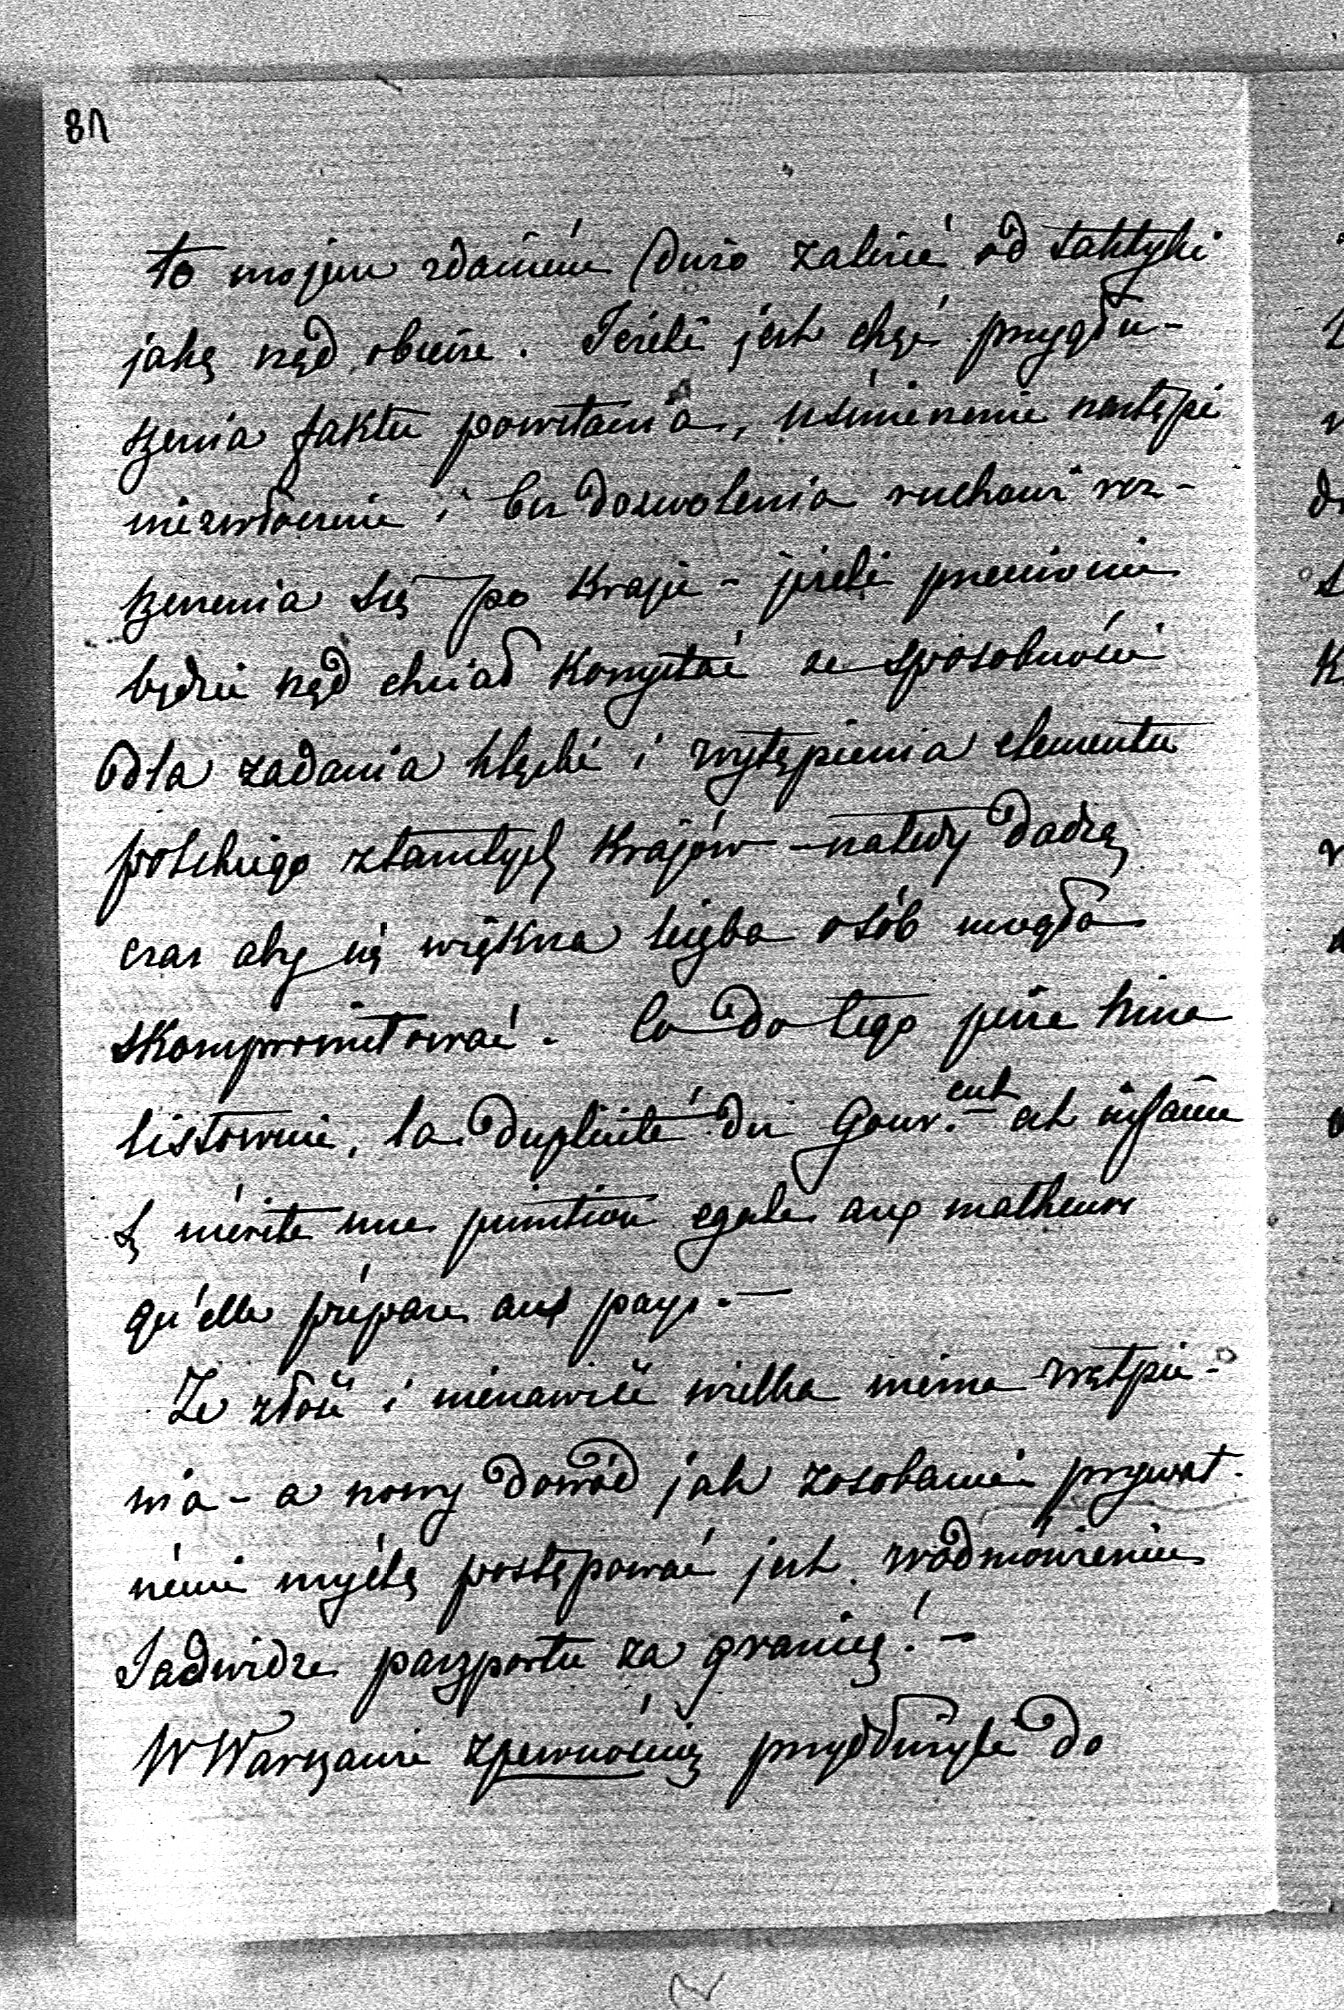 81
to mojem zdaniem dużo zależeć od taktyki
jaką rząd obierze. Jeżeli jest chęć przygłu-
szenia faktu powstania, uśmierzenie nastąpi
niezwłocznie i bez dozwolenia ruchowi roz-
szerzenia się po kraju - jeżeli przeciwnie
będzie rząd chciał korzystać ze sposobności
dla zadania klęski i wytępienia elementu
polskiego z tamtych krajów - natedy dadzą
czas aby się większa liczba osób mogła
skompromitować. Co do tego pisze
listownie, la duplicité du Gouv.ent est infâme
& mérite une punition egale aux malheurs
qu'elle prépare aux pays. —
Że złość i nienawiść wielka niema wątpie-
nia - a nowy dowód jak z osobami prywat-
némi myślą postępować jest w odmówieniu
Jadwidze paszportu za granicę! —
W Warszawie z pewnością do